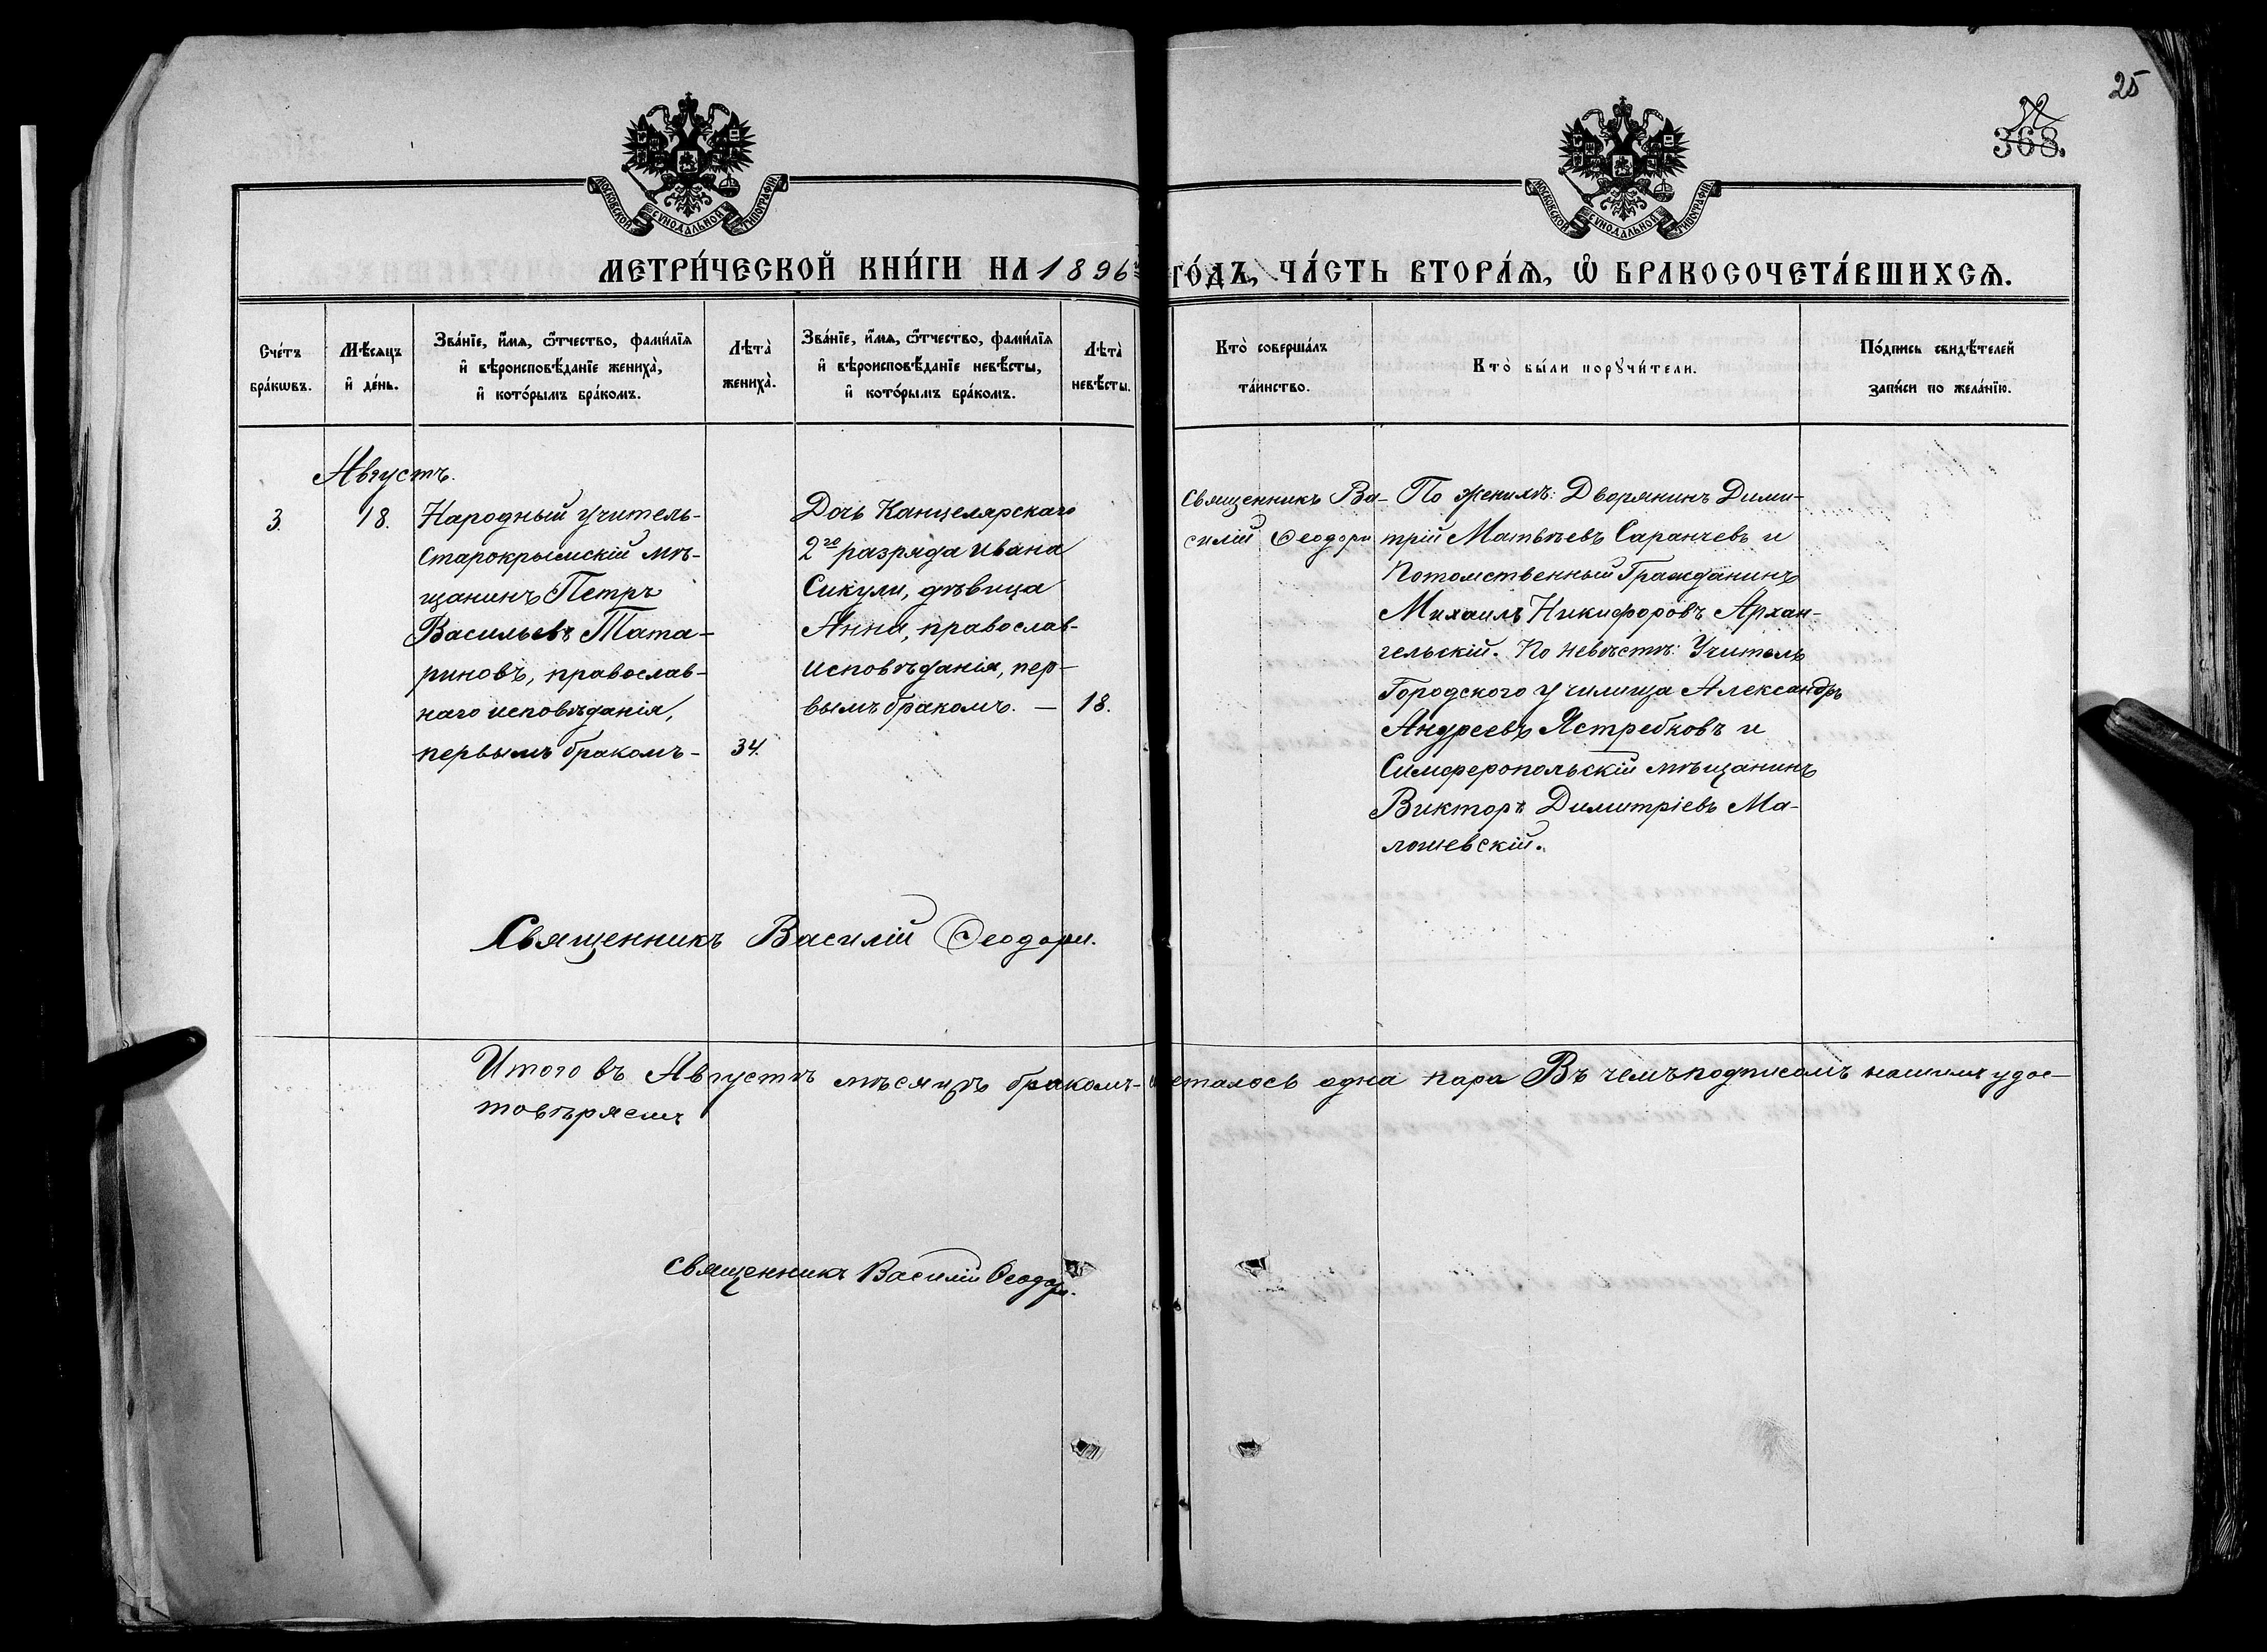 25
368.
МОСКОВСКОЙ СУНОДАЛЬНОЙ ТИПОГРАФІИ
МОСКОВСКОЙ СУНОДАЛЬНОЙ ТИПОГРАФІИ
МЕТРИ́ЧЕСКОЙ КНИ́ГИ НА 1896 ГО́ДЪ, ЧА́СТЬ ВТОРА́Ѧ, Ѡ БРАКОСОЧЕТА́ВШИХСѦ.
Сче́тъ
бра́кѡвъ.
Мѣ́сяцъ
и҆ де́нь.
Зва́нїе, и҆́мѧ, ѻ҆́тчество, фами́лїѧ
и҆ вѣроисповѣ́данїе жениха̀,
и҆ кото́рымъ бра́комъ.
Лѣта̀
жениха̀.
Зва́нїе, и҆́мѧ, ѻ҆́тчество, фами́лїѧ
и҆ вѣроисповѣ́данїе невѣ́сты,
и҆ кото́рымъ бра́комъ.
Лѣта̀
невѣ́сты.
Кто̀ соверша́лъ
та́инство.
Кто̀ бы́ли порꙋчи́тели.
По́дпись свидѣ́телей
за́писи по жела́нїю.
Августъ.
3.
18.
Народный учитель-
Старокрымскій мѣ-
щанинъ Петръ
Васильевъ Тата-
риновъ, православ-
наго исповѣданія,
первымъ бракомъ-
34.
Дочь Канцелярскаго
2го разряда Ивана
Сикули, дѣвица
Анна, православ-
исповѣданія, пер-
вымъ бракомъ. —
18.
Священникъ Ва-
силій Ѳеодори
По женихѣ: Дворянинъ Дими-
трій Матвѣевъ Саранчевъ и
Потомственный Гражданинъ
Михаилъ Никифоровъ Архан-
гельскій. По невѣстѣ: Учитель
Городского училища Александръ
Андреевъ Ястребковъ и
Симферопольскій мѣщанинъ
Викторъ Димитріевъ Ма-
лошевскій.
Священникъ Василій Ѳеодори.
Итого въ Августѣ мѣсяцѣ бракомъ- сочеталось одна пара Въ чемъ подписомъ нашимъ удос-
товѣряемъ
Священникъ Василій Ѳеодори.